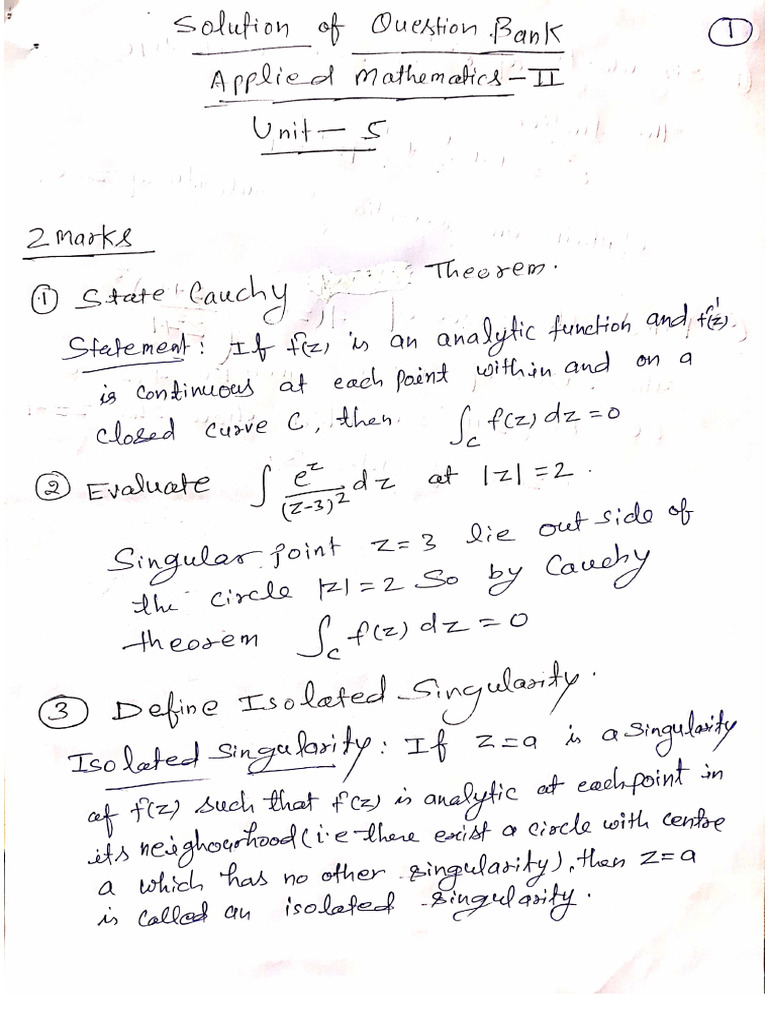 Solution of Question Bank
1
Applied Mathematics - II
Unit - 5
2 marks
① State Cauchy Theorem.
Statement: If f(z) is an analytic function and f'(z).
is continuous at each point within and on a
closed curve C, then ∫_C f(z) dz = 0
② Evaluate ∫ e^z/(z-3)^2 dz at |z| = 2.
Singular point z = 3 lie out side of
the circle |z| = 2 So by Cauchy
theorem ∫_C f(z) dz = 0
③ Define Isolated Singularity.
Isolated Singularity: If z = a is a singularity
of f(z) such that f(z) is analytic at each point in
its neighourhood (i.e there exist a circle with centre
a which has no other singularity), then z = a
is called an isolated singularity.